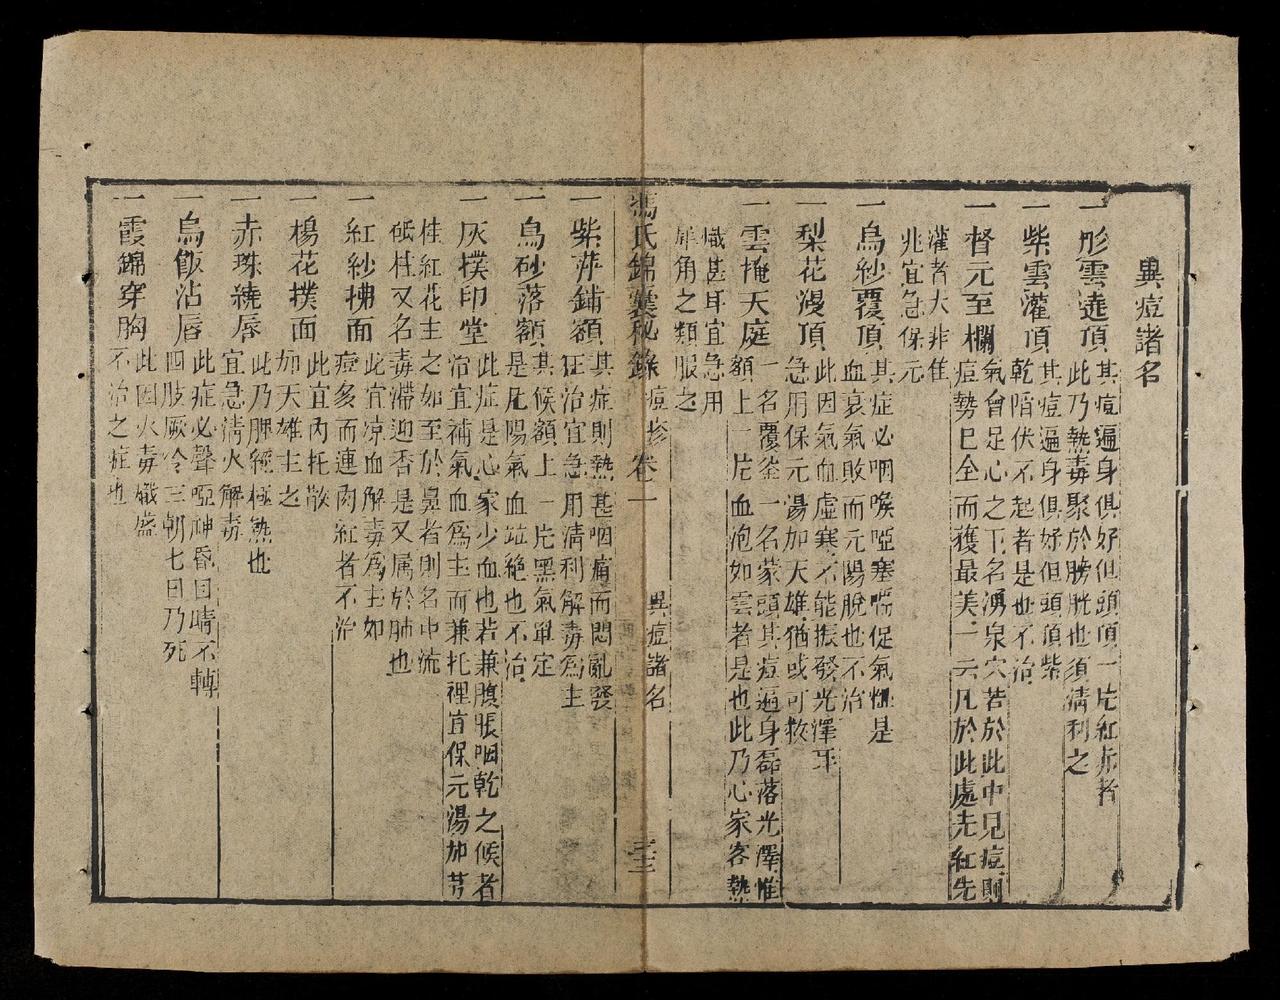 異痘諸名
一彤雲遶頂其痘遍身俱好但頭頂一片紅赤者
此乃熱毒聚於膀胱也須清利之
一柴雲灌頂其痘遍身俱好但頭頂紫
乾陷伏不起者是也不治
一督元至欄氣曾足心之下名湧泉穴若於此中見痘則
痘勢已全而獲最美一云凡於此處先紅先
灌者大非佳
兆宜急保元
一烏紗覆頂其症必咽喉啞塞喘促氣粗是
血衰氣敗而元陽脫也不治
一梨花漫頂此因氣血虛寒不能振發光澤耳
急用保元湯加天雄猶或可救
一雲掩天庭一名覆釜一名蒙頭其痘遍身磊落光澤惟
額上一片血泡如雲者是也此乃心家客熱
熾甚耳宜急用
犀角之類服之
馮氏錦囊秘錄 痘疹卷一 異痘諸名 三十三
一柴萍鋪額其症則熱甚咽痛而悶亂發
狂治宜急用清利解毒為主
一烏砂落額其候額上一片黑氣單定
是凡陽氣血竝絕也不治
一灰撲印堂此症是心家少血也若兼腹脹咽乾之候者
治宜補氣血爲主而兼托裡宜保元湯加芎
桂紅花主之如至於鼻者則名中流
砥柱又名毒滯迎香是又属於肺也
一紅紗拂面此宜凉血解毒爲主如
痘多而連肉紅者不治
一楊花撲面此宜內托散
加天雄主之
一赤珠繞唇此乃脾經極熱也
宜急清火解毒
一烏飯沾唇此症必聲啞神昏目睛不轉
四肢厥冷三朝七日乃死
一霞錦穿胸此因火毒熾盛
不治之症也